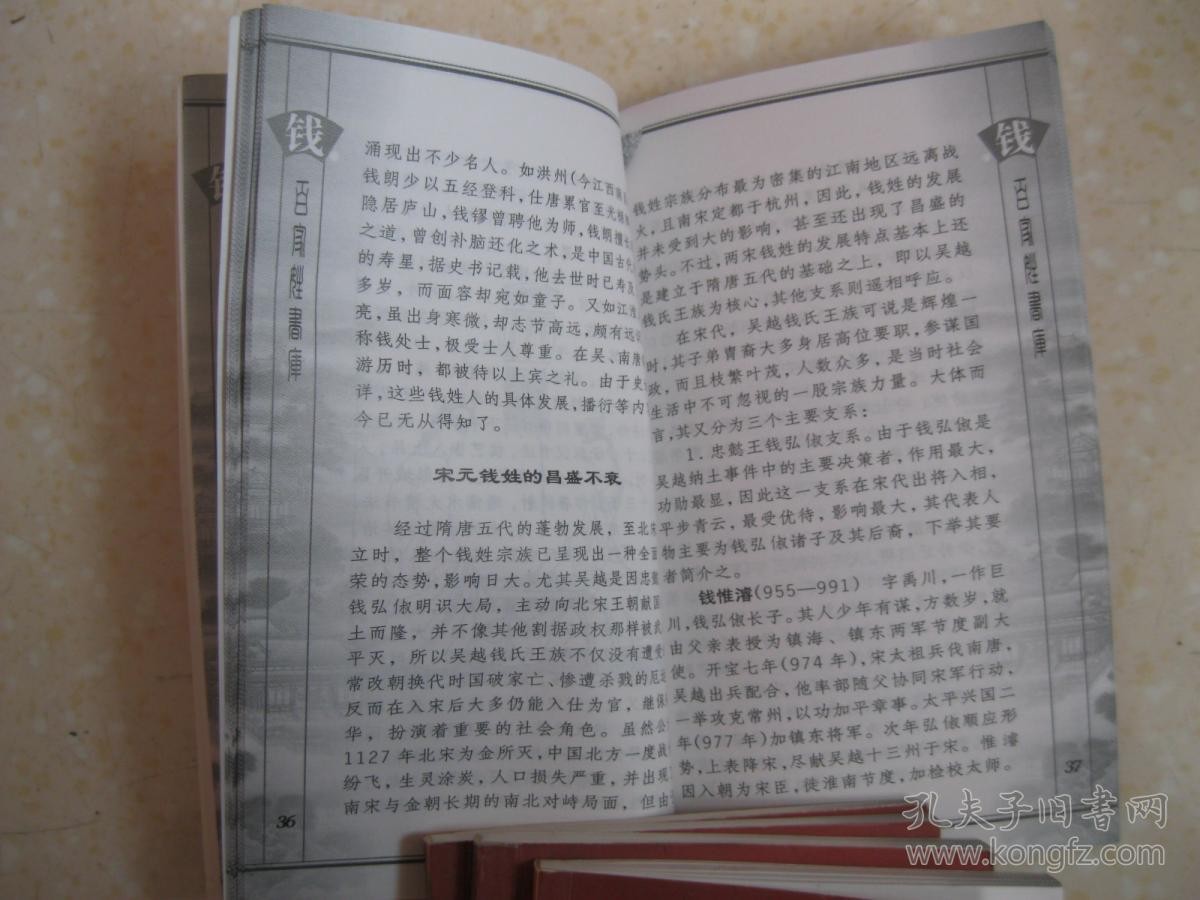 钱
百家姓書庫
涌现出不少名人。如洪州(今江西南
钱朗少以五经登科，仕唐累官至光
隐居庐山，钱镠曾聘他为师，钱朗擅
之道，曾创补脑还化之术，是中国古代
的寿星，据史书记载，他去世时已寿
多岁，而面容却宛如童子。又如江淮
亮，虽出身寒微，却志节高远，颇有远
称钱处士，极受士人尊重。在吴、南唐
游历时，都被待以上宾之礼。由于史
详，这些钱姓人的具体发展，播衍等内
今已无从得知了。
宋元钱姓的昌盛不衰
经过隋唐五代的蓬勃发展，至北宋
立时，整个钱姓宗族已呈现出一种全面
荣的态势，影响日大。尤其吴越是因忠懿
钱弘俶明识大局，主动向北宋王朝献国
土而隆，并不像其他割据政权那样被武
平灭，所以吴越钱氏王族不仅没有遭受
常改朝换代时国破家亡、惨遭杀戮的厄
反而在入宋后大多仍能入仕为官，继保
华，扮演着重要的社会角色。虽然公
1127年北宋为金所灭，中国北方一度战
纷飞，生灵涂炭，人口损失严重，并出现
南宋与金朝长期的南北对峙局面，但由
36
钱
百家姓書庫
钱姓宗族分布最为密集的江南地区远离战
火，且南宋定都于杭州，因此，钱姓的发展
并未受到大的影响，甚至还出现了昌盛的
势头。不过，两宋钱姓的发展特点基本上还
是建立于隋唐五代的基础之上，即以吴越
钱氏王族为核心，其他支系则遥相呼应。
在宋代，吴越钱氏王族可说是辉煌一
时，其子弟胄裔大多身居高位要职，参谋国
政，而且枝繁叶茂，人数众多，是当时社会
生活中不可忽视的一股宗族力量。大体而
言，其又分为三个主要支系：
1．忠懿王钱弘俶支系。由于钱弘俶是
吴越纳土事件中的主要决策者，作用最大，
功勋最显，因此这一支系在宋代出将入相，
平步青云，最受优待，影响最大，其代表人
物主要为钱弘俶诸子及其后裔，下举其要
者简介之。
钱惟濬(955—991) 字禹川，一作巨
川，钱弘俶长子。其人少年有谋，方数岁，就
由父亲表授为镇海、镇东两军节度副大
使。开宝七年(974年)，宋太祖兵伐南唐，
吴越出兵配合，他率部随父协同宋军行动，
一举攻克常州，以功加平章事。太平兴国二
年(977年)加镇东将军。次年弘俶顺应形
势，上表降宋，尽献吴越十三州于宋。惟濬
因入朝为宋臣，徙淮南节度，加检校太师。
37
孔夫子旧书网
www.kongfz.com